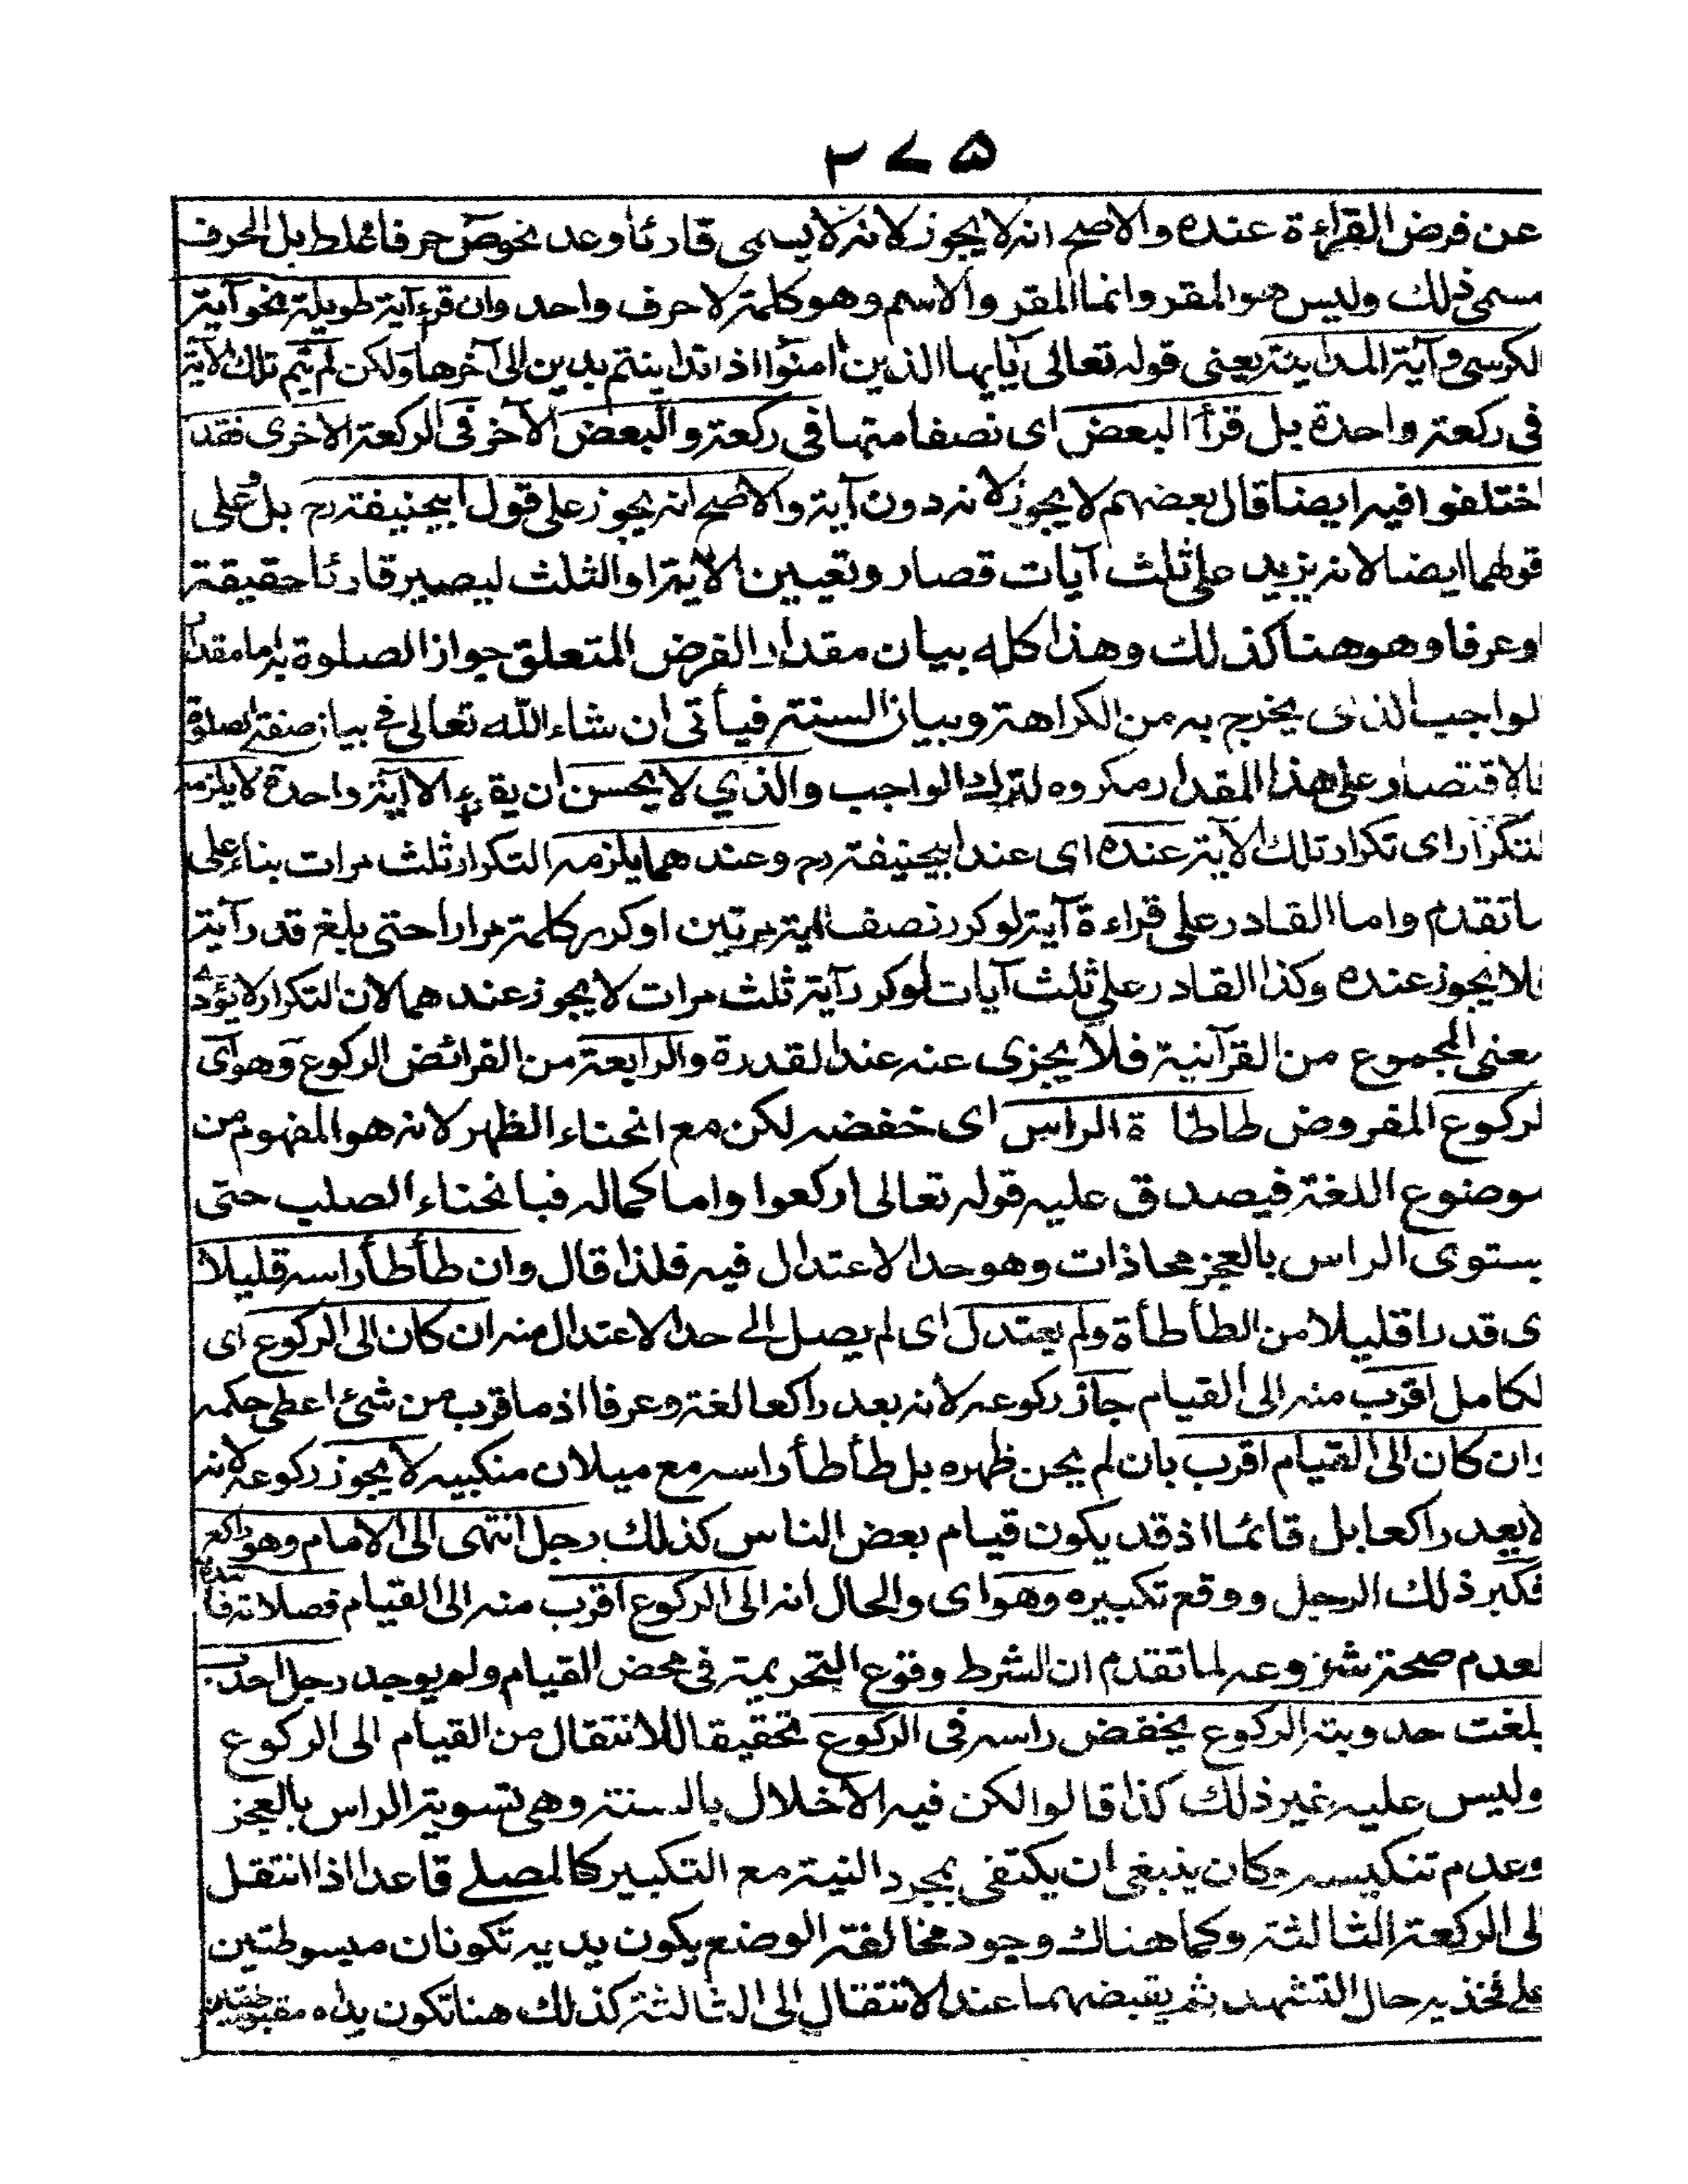 ٢٧٥
عن فرض القراءة عنده والاصح انه لا يجوز لانه لا يسمى قارئا وعد نحو ص حرفا غلط بل الحرف
مسمى ذلك وليس هو المقرو وانما المقرو الاسم وهو كلمة لا حرف واحد وان قرء آية طويلة نحو آية
لكرسى و آية المداينة يعنى قوله تعالى يايها الذين امنوا اذا تداينتم بدين الى آخرها ولكن لم يتم تلك الآية
فى ركعة واحدة بل قرأ البعض اى نصفا منها فى ركعة و البعض الآخر فى الركعة الاخرى فقد
ختلفوا فيه ايضا قال بعضهم لا يجوز لانه دون آية والاصح انه يجوز على قول ابيحنيفة رح بل على
قولهما ايضا لانه يزيد على ثلث آيات قصار وتعيين الآية او الثلث ليصير قارئا حقيقة
وعرفا وهو هنا كذلك وهذا كله بيان مقدار الفرض المتعلق جواز الصلوة به اما مقدار
لواجب الذى يخرج به من الكراهة وبيان السنة فيأتى ان شاء الله تعالى فى بيان صفة الصلوة
فالاقتصار على هذا المقدار مكروه لترك الواجب والذي لا يحسن ان يقرء الا آية واحدة لا يلزمه
لتكرار اى تكرار تلك الآية عنده اى عند ابيحنيفة رح وعندهما يلزمه التكرار ثلث مرات بناء على
ماتقدم واما القادر على قراءة آية لو كرر نصف آية مرتين او كرر كلمة مرارا حتى بلغ قدر آية
فلا يجوز عنده وكذا القادر على ثلث آيات لو كرر آية ثلث مرات لا يجوز عندهما لان التكرار لا يؤدى
معنى المجموع من القرآنية فلا يجزى عنه عند القدرة والرابعة من الفرائض الركوع وهو اى
لركوع المفروض طاطاة الراس اى خفضه لكن مع انحناء الظهر لانه هو المفهوم من
موضوع اللغة فيصدق عليه قوله تعالى اركعوا واما كماله فبانحناء الصلب حتى
يستوى الراس بالعجز محاذات وهو حد الاعتدال فيه فلذا قال وان طأطأ راسه قليلا
ى قدرا قليلا من الطأطأة ولم يعتدل اى لم يصل الى حد الاعتدال منه ان كان الى الركوع اى
لكامل اقرب منه الى القيام جاز ركوعه لأنه يعد راكعا لغة وعرفا اذ ما قرب من شئ اعطى حكمه
وان كان الى القيام اقرب بان لم يحن ظهره بل طأطأ راسه مع ميلان منكبيه لا يجوز ركوعه لانه
لا يعد راكعا بل قائما اذ قد يكون قيام بعض الناس كذلك رجل انتهى الى الامام وهو راكع
فكبر ذلك الرجل ووقع تكبيره وهو اى والحال انه الى الركوع اقرب منه الى القيام فصلاته فاسدة
لعدم صحة شروعه لما تقدم ان الشرط وقوع التحريمة فى محض القيام ولم يوجد رجل احدب
بلغت حدوبته الركوع يخفض راسه فى الركوع تحقيقا للانتقال من القيام الى الركوع
وليس عليه غير ذلك كذا قالوا لكن فيه الاخلال بالسنة وهى تسوية الراس بالعجز
وعدم تنكيسه وكان ينبغى ان يكتفى بمجرد النية مع التكبير كالمصلے قاعدا اذا انتقل
لى الركعة الثالثة وكما هناك وجود مخالفة الوضع بكون يديه تكونان مبسوطتين
على فخذيه حال التشهد ثم يقبضهما عند الانتقال الى الثالثة كذلك هنا تكون يداه مقبوضتين